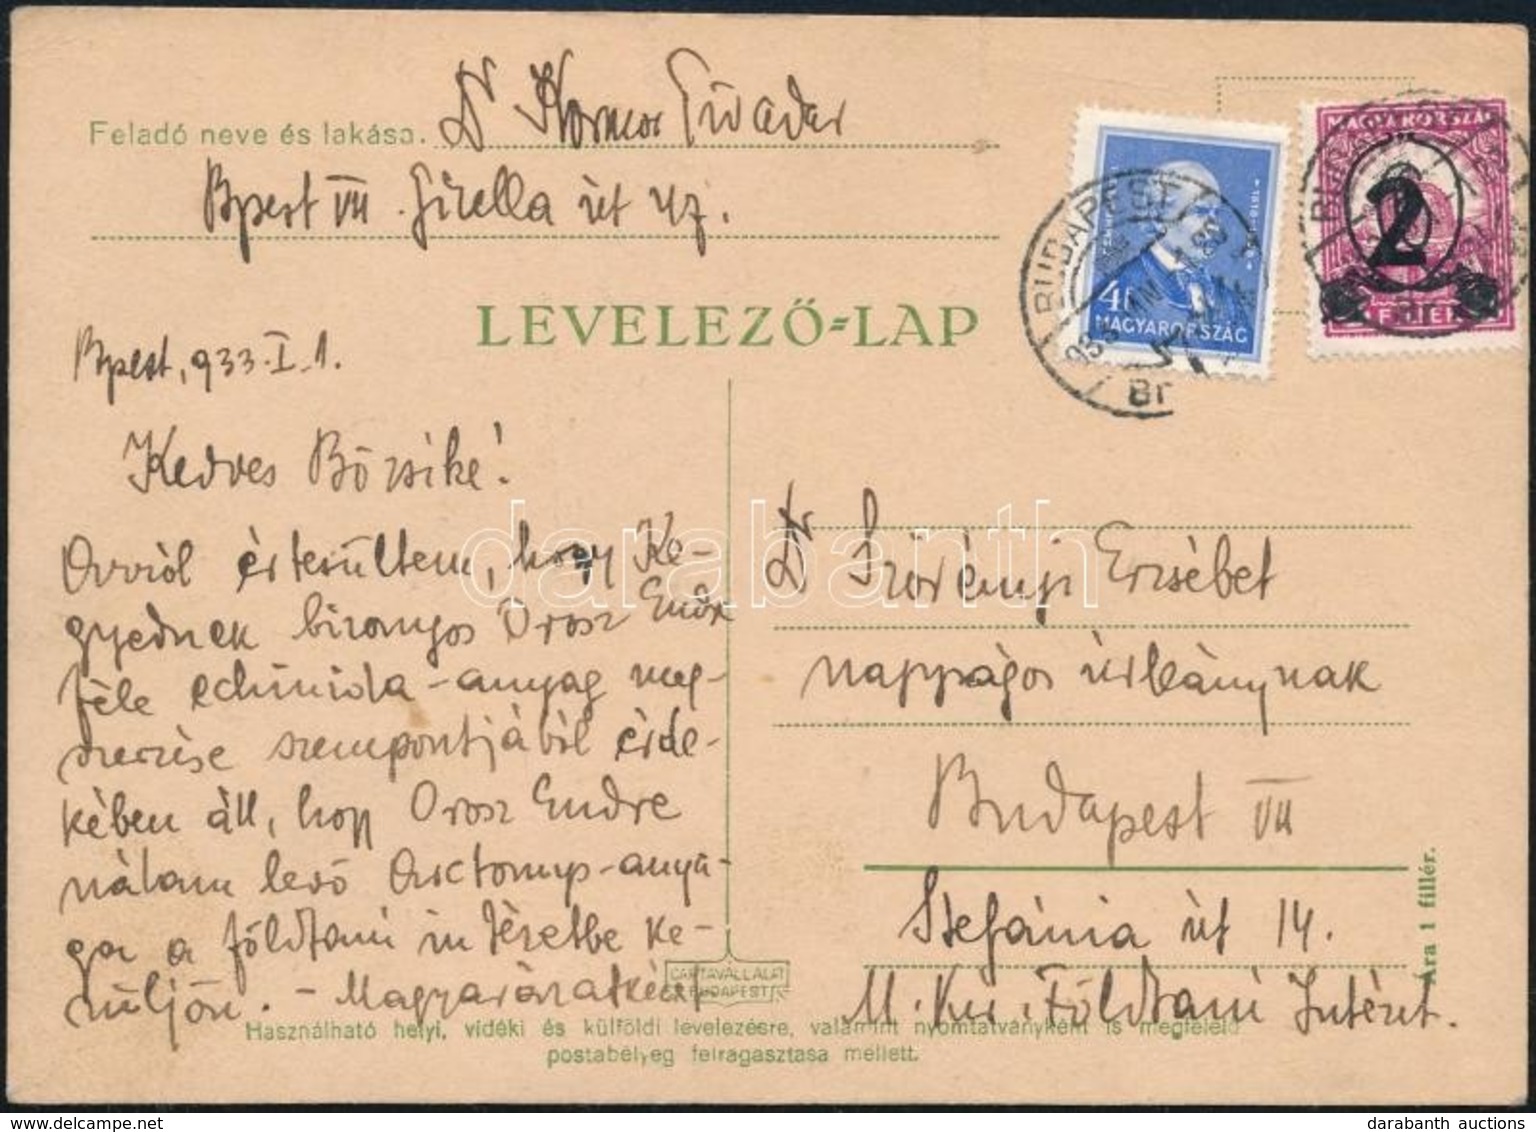 Feladó neve és lakása. Dr Kormos Tivadar
Bpest VII. Gizella út 47.
BUDAPEST
MAGYARORSZÁG
MAGYARORSZÁG
2
LEVELEZŐ-LAP
Bpest, 933.I.1.
Kedves Bözsike!
Arról értesültem, hogy Ke-
gyednek bizonyos Orosz Endre
féle echinida-anyag meg-
szerzése szempontjából érde-
kében áll, hogy Orosz Endre
nálam levő Arctomys-anya-
ga a földtani intézetbe ke-
rüljön. - Magyarázatképp
Dr Szörényi Erzsébet
nagyságos úrleánynak
Budapest VII
Stefánia út 14.
M. Kir. Földtani Intézet.
Ára 1 fillér.
CARTAVÁLLALAT
BUDAPEST
Használható helyi, vidéki és külföldi levelezésre, valamint nyomtatványként is megfelelő
postabélyeg felragasztása mellett.
darabanth
darabanth auctions